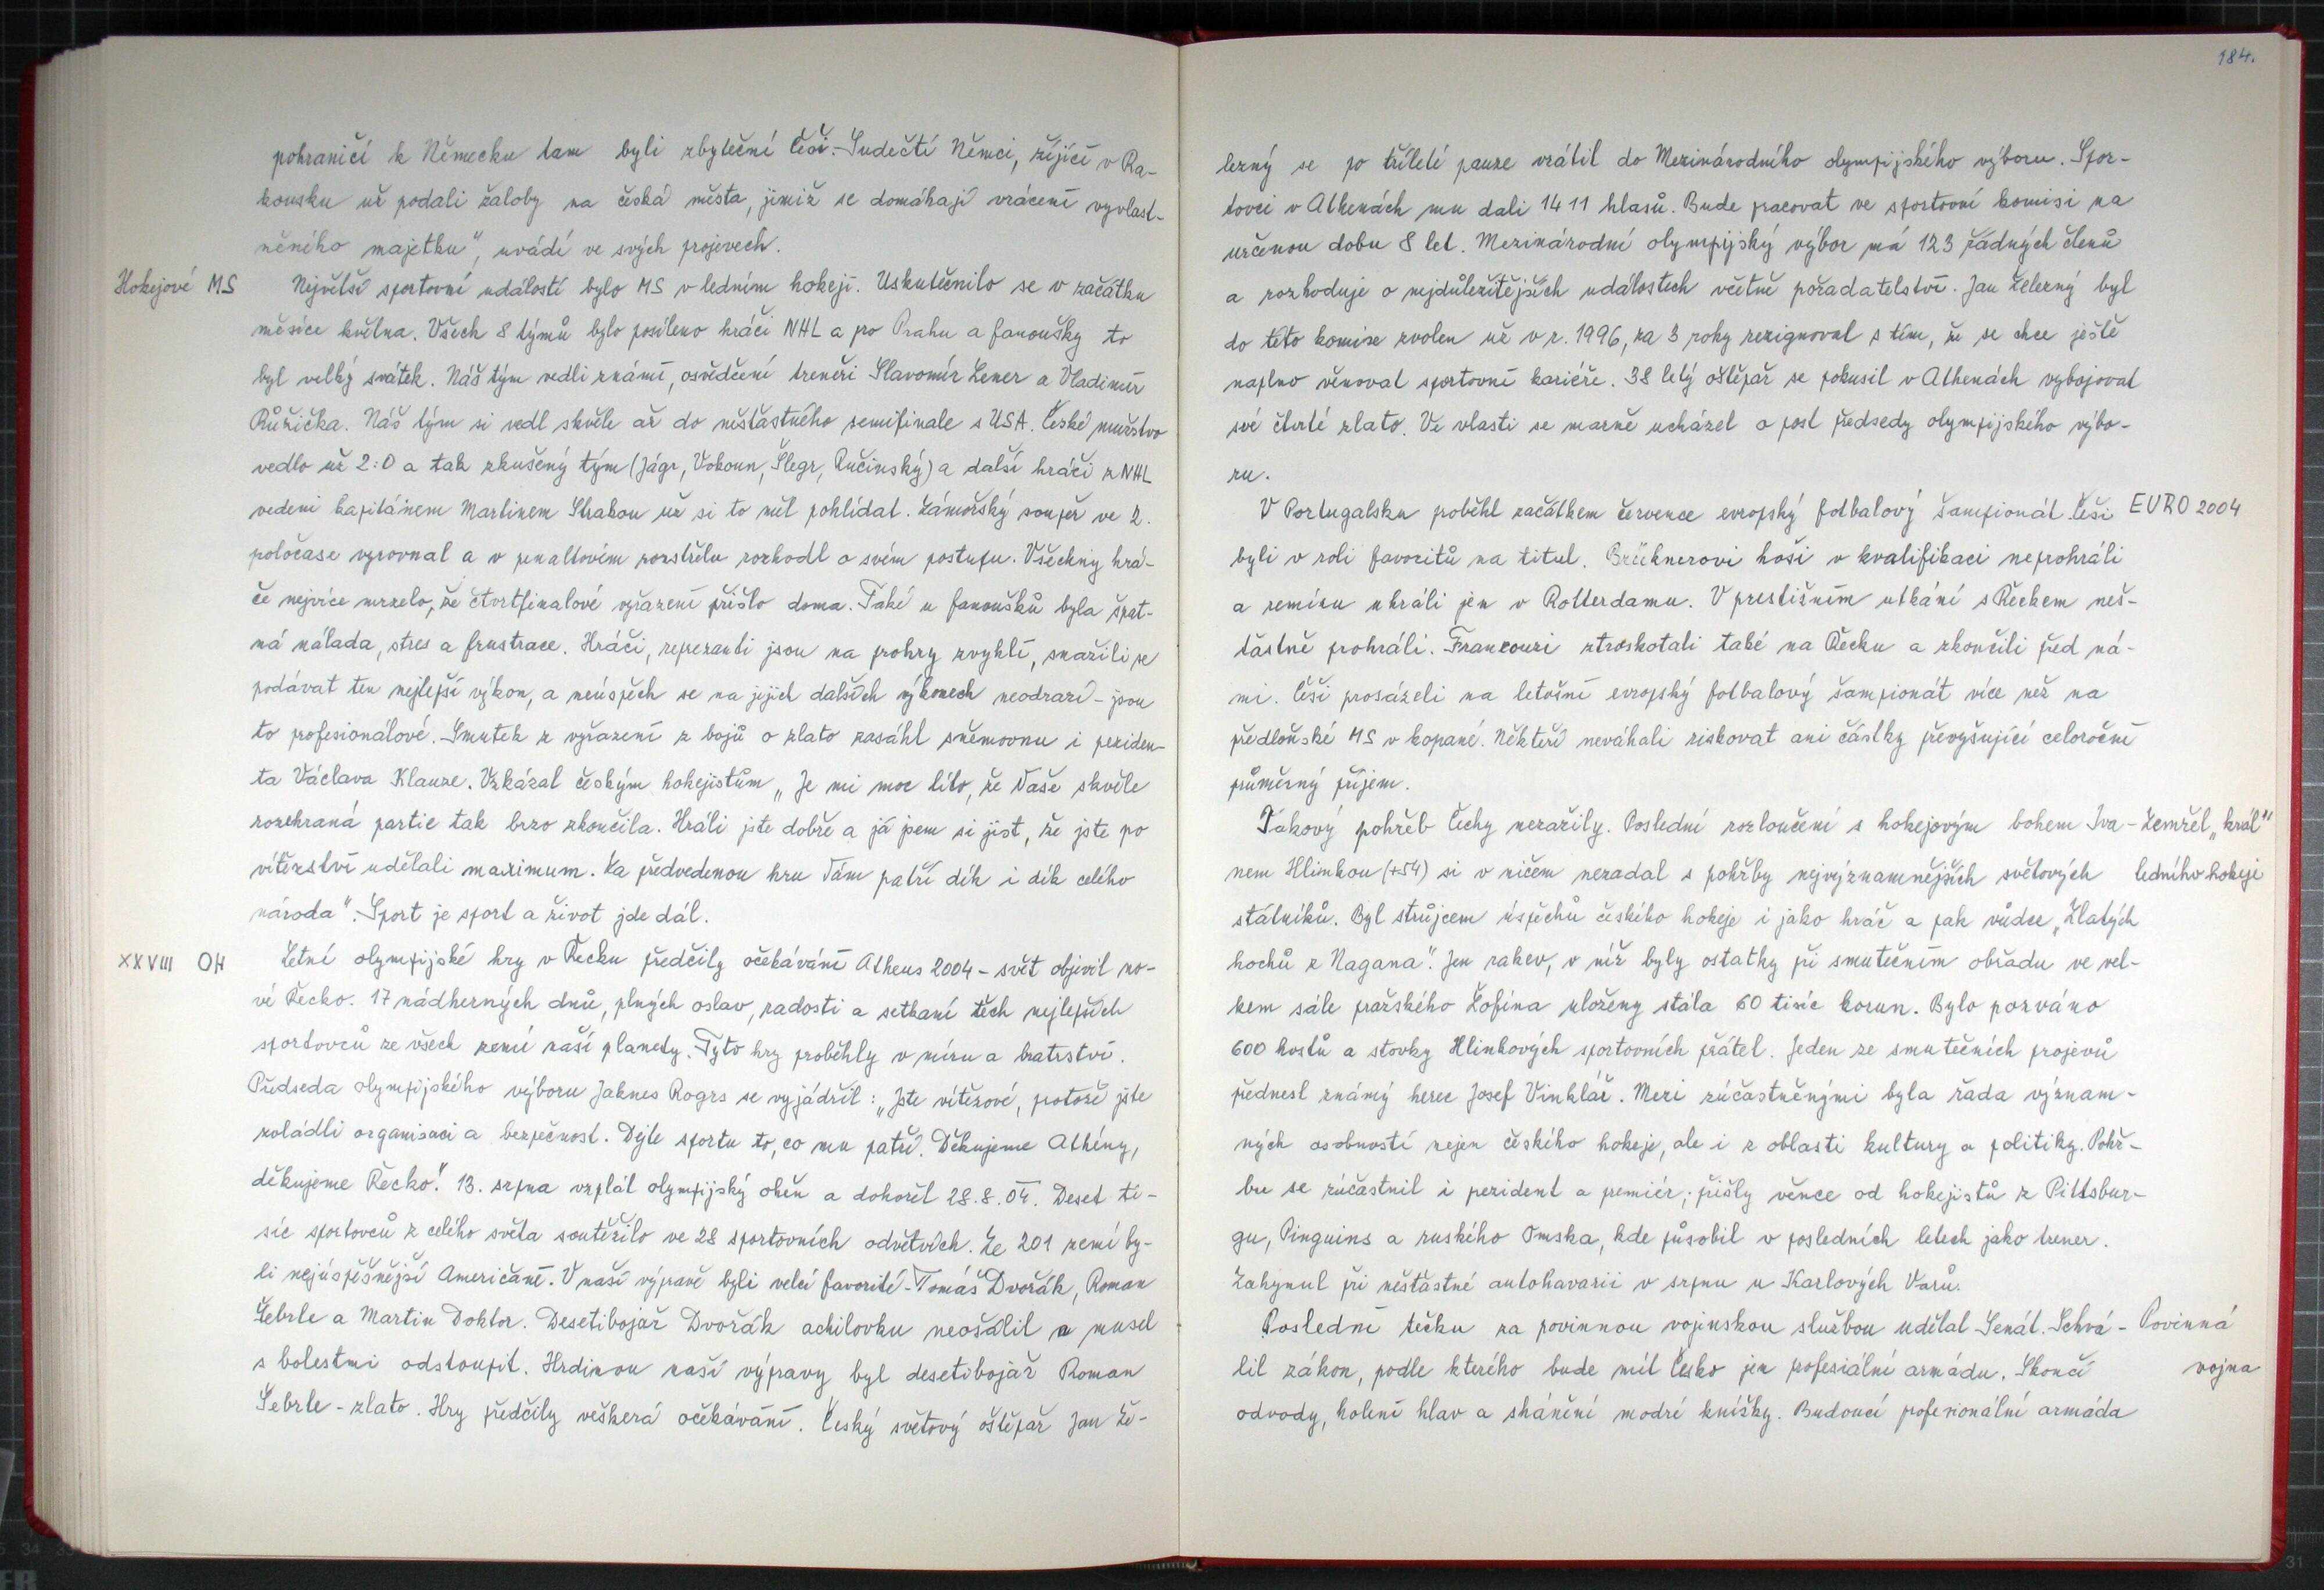 pohraničí k Německu tam byli zbyteční Češi. Sudečtí Němci, žijící v Ra-
kousku už podali žaloby na česká města, jimiž se domáhají vrácení vyvlast-
něného majetku", uvádí ve svých projevech.
Hokejové MS
Největší sportovní událostí bylo MS v ledním hokeji. Uskutečnilo se v začátku
měsíce května. Všech 8 týmů bylo posíleno hráči NHL a pro Prahu a fanoušky to
byl velký svátek. Náš tým vedli známí, osvědčení trenéři Slavomír Lener a Vladimír
Růžička. Náš tým si vedl skvěle až do nešťastného semifinale s USA. České mužstvo
vedlo už 2:0 a tak zkušený tým (Jágr, Vokoun, Šlegr, Ručinský) a další hráči z NHL
vedeni kapitánem Martinem Strakou už si to měl pohlídat. Zámořský soupeř ve 2.
poločase vyrovnal a v penaltovém rozstřelu rozhodl o svém postupu. Všechny hrá-
če nejvíce mrzelo, že čtvrtfinalové vyřazení přišlo doma. Také u fanoušků byla špat-
ná nálada, stres a frustrace. Hráči, reprezanti jsou na prohry zvyklí, snažili se
podávat ten nejlepší výkon, a neúspěch se na jejich dalších výkonech neodrazí - jsou
to profesionálové. Smutek z vyřazení z bojů o zlato zasáhl sněmovnu i preziden-
ta Václava Klause. Vzkázal českým hokejistům „Je mi moc líto, že Vaše skvěle
rozehraná partie tak brzo skončila. Hráli jste dobře a já jsem si jist, že jste po
vítězství udělali maximum. Za předvedenou hru Vám patří dík i dík celého
národa". Sport je sport a život jde dál.
XXVIII OH
Letní olympijské hry v Řecku předčily očekávání Athens 2004 - svět objevil no-
vé Řecko. 17 nádherných dnů, plných oslav, radosti a setkaní těch nejlepších
sportovců ze všech zemí naší planety. Tyto hry proběhly v míru a bratrství.
Předseda olympijského výboru Jaknes Rogrs se vyjádřil: „Jste vítězové, protože jste
zvládli organisaci a bezpečnost. Dějte sportu to, co mu patří. Děkujeme Athény,
děkujeme Řecko". 13. srpna vzplál olympijský oheň a dohořel 28.8.04. Deset ti-
síc sportovců z celého světa soutěžilo ve 28 sportovních odvětvích. Ze 201 zemí by-
li nejúspěšnější Američané. V naší výpravě byli velcí favorité - Tomáš Dvořák, Roman
Šebrle a Martin Doktor. Desetibojař Dvořák achilovku neošálil a musel
s bolestmi odstoupit. Hrdinou naší výpravy byl desetibojař Roman
Šebrle - zlato. Hry předčily veškerá očekávání. Český světový oštěpař Jan Že-
184.
lezný se po tříleté pauze vrátil do Mezinárodního olympijského výboru. Spor-
tovci v Athenách mu dali 1411 hlasů. Bude pracovat ve sportovní komisi na
určenou dobu 8 let. Mezinárodní olympijský výbor má 123 řádných členů
a rozhoduje o nejdůležitějších událostech včetně pořadatelství. Jan Železný byl
do této komise zvolen už v r. 1996, za 3 roky rezignoval s tím, že se chce ještě
naplno věnovat sportovní kariéře. 38 letý oštěpař se pokusil v Athenách vybojovat
své čtvrté zlato. Ve vlasti se marně ucházel o post předsedy olympijského výbo-
ru.
V Portugalsku proběhl začátkem července evropský fotbalový šampionát. Češi
EURO 2004
byli v roli favoritů na titul. Brücknerovi hoši v kvalifikaci neprohráli
a remízu uhráli jen v Rotterdamu. V prestižním utkání s Řeckem neš-
ťastně prohráli. Francouzi ztroskotali také na Řecku a skončili před ná-
mi. Češi prosázeli na letošní evropský fotbalový šampionát více než na
předloňské MS v kopané. Někteří neváhali riskovat ani částky převyšující celoroční
průměrný příjem.
Takový pohřeb Čechy nezažily. Poslední rozloučení s hokejovým bohem Iva-
Zemřel „král"
nem Hlinkou (+54) si v ničem nezadal s pohřby nejvýznamnějších světových
ledního hokeje
státníků. Byl strůjcem úspěchů českého hokeje i jako hráč a pak vůdce „Zlatých
hochů z Nagana". Jen rakev, v níž byly ostatky při smutečním obřadu ve vel-
kem sále pražského Žofína uloženy stála 60 tisíc korun. Bylo pozváno
600 hostů a stovky Hlinkových sportovních přátel. Jeden ze smutečních projevů
přednesl známý herec Josef Vinklář. Mezi zúčastněnými byla řada význam-
ných osobností nejen českého hokeje, ale i z oblasti kultury a politiky. Pohř-
bu se zúčastnil i prezident a premiér; přišly věnce od hokejistů z Pittsbur-
gu, Pinguins a ruského Omska, kde působil v posledních letech jako trener.
Zahynul při nešťastné autohavarii v srpnu u Karlových Varů.
Poslední tečku za povinnou vojenskou službou udělal Senát. Schvá-
Povinná
lil zákon, podle kterého bude mít Česko jen profesiální armádu. Skončí
vojna
odvody, holení hlav a shánění modré knížky. Budoucí profesionální armáda